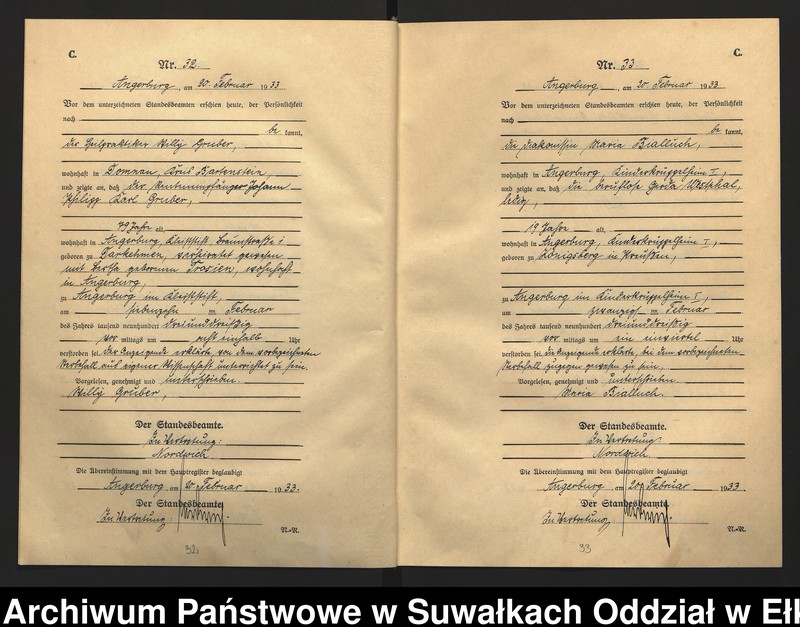 C.
Nr. 32.
Angerburg, am 20. Februar 1933
Vor dem unterzeichneten Standesbeamten erschien heute, der Persönlichkeit
nach
be kannt,
der Heilpraktiker Willy Gruber,
wohnhaft in Domnau, Kreis Bartenstein,
und zeigte an, daß der Rentenempfänger Johann
Philipp Karl Gruber,
79 Jahre alt,
wohnhaft in Angerburg,
geboren zu Darkehmen, verheiratet gewesen
mit Bertha geborenen Trosien, wohnhaft
in Angerburg,
zu Angerburg im
am siebzehn ten Februar
des Jahres tausend neunhundert dreiunddreißig
vor mittags um acht einhalb Uhr
verstorben sei. Der Anzeigende erklärte, von dem vorbezeichneten
Sterbefall aus eigener Wissenschaft unterrichtet zu sein.
Vorgelesen, genehmigt und unterschrieben.
Willy Gruber,
Der Standesbeamte.
In Vertretung:
Nordwich
Die Übereinstimmung mit dem Hauptregister beglaubigt
Angerburg, am 20. Februar 1933.
Der Standesbeamte
In Vertretung:
N.-N.
32.
C.
Nr. 33.
Angerburg, am 20. Februar 1933
Vor dem unterzeichneten Standesbeamten erschien heute, der Persönlichkeit
nach
be kannt,
die Diakonissin Maria Bialluch,
wohnhaft in Angerburg, Kinderkrüppelheim I,
und zeigte an, daß die berufslose Gerda Westphal,
ledig,
19 Jahre alt,
wohnhaft in Angerburg, Kinderkrüppelheim I,
geboren zu Königsberg in Preußen,
zu Angerburg im Kinderkrüppelheim I,
am zwanzigsten Februar
des Jahres tausend neunhundert dreiunddreißig
vor mittags um ein einviertel Uhr
verstorben sei. Die Anzeigende erklärte, bei dem vorbezeichneten
Sterbefall zugegen gewesen zu sein.
Vorgelesen, genehmigt und unterschrieben.
Maria Bialluch.
Der Standesbeamte.
In Vertretung:
Nordwich
Die Übereinstimmung mit dem Hauptregister beglaubigt
Angerburg, am 20. Februar 1933.
Der Standesbeamte
In Vertretung:
N.-N.
33
Archiwum Państwowe w Suwałkach Oddział w Ełk